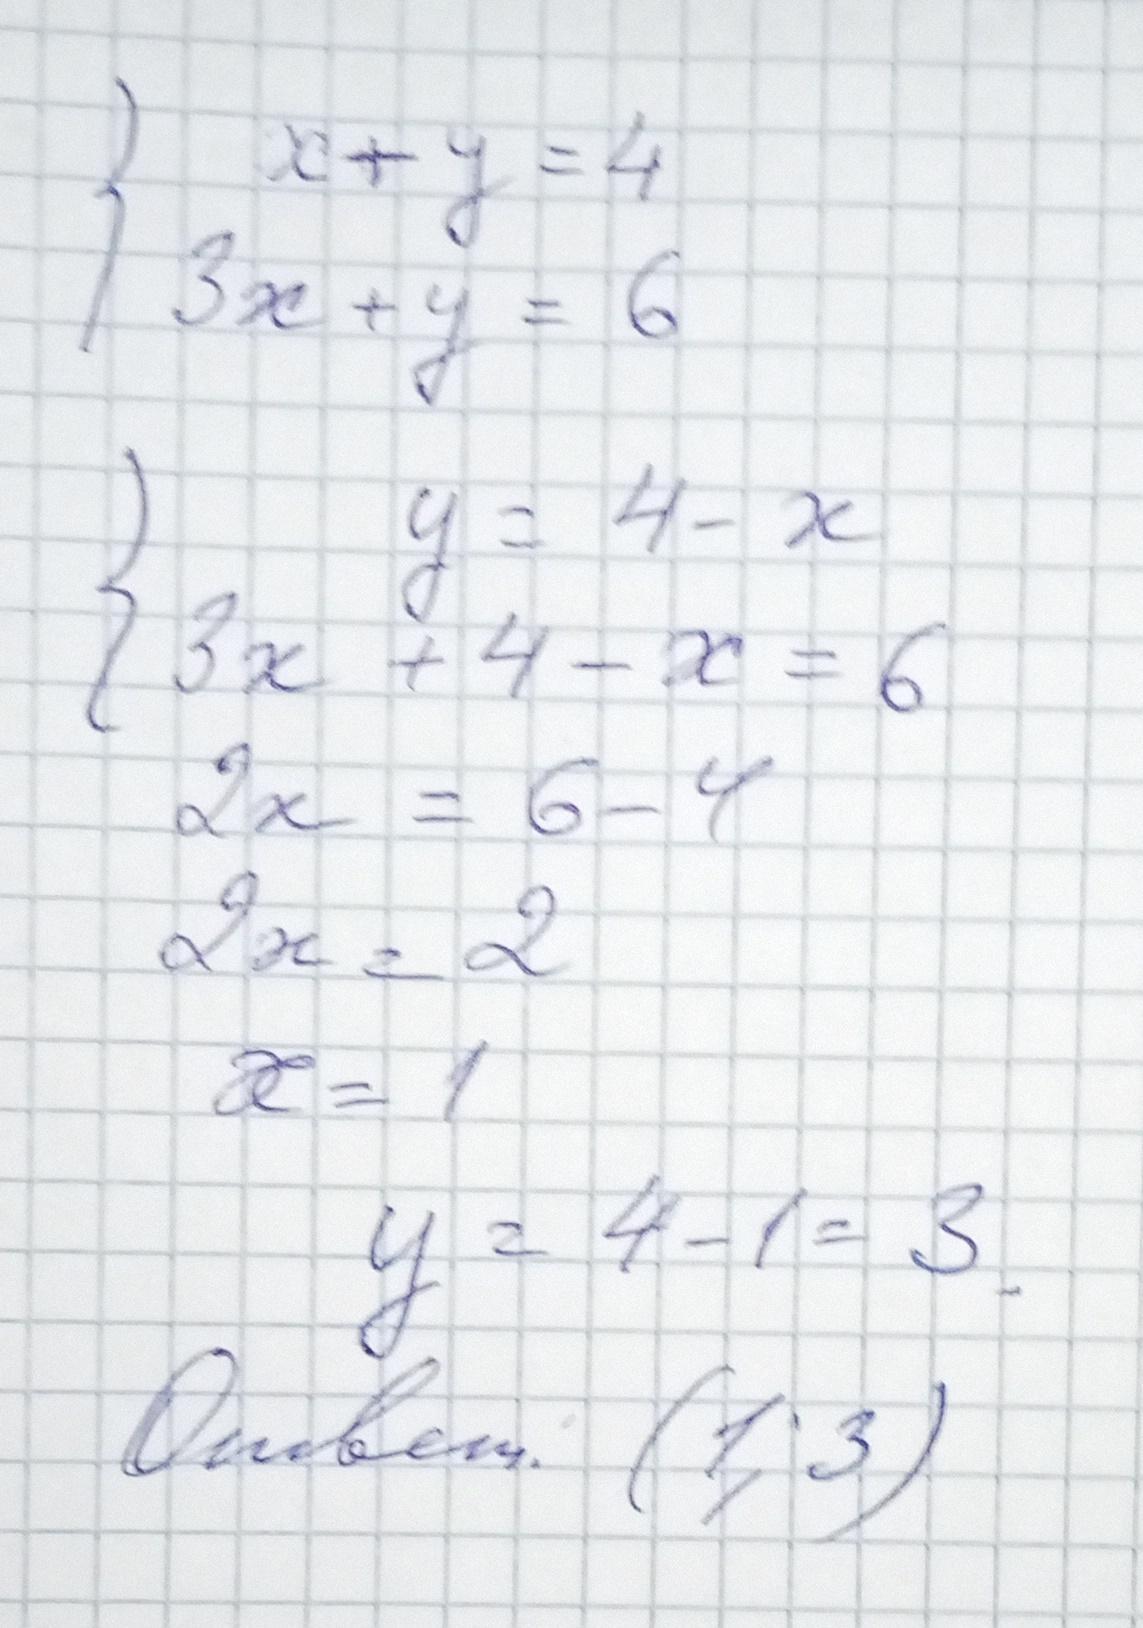 { x + y = 4
3x + y = 6
{ y = 4 - x
3x + 4 - x = 6
2x = 6 - 4
2x = 2
x = 1
y = 4 - 1 = 3.
Ответ: (1; 3)